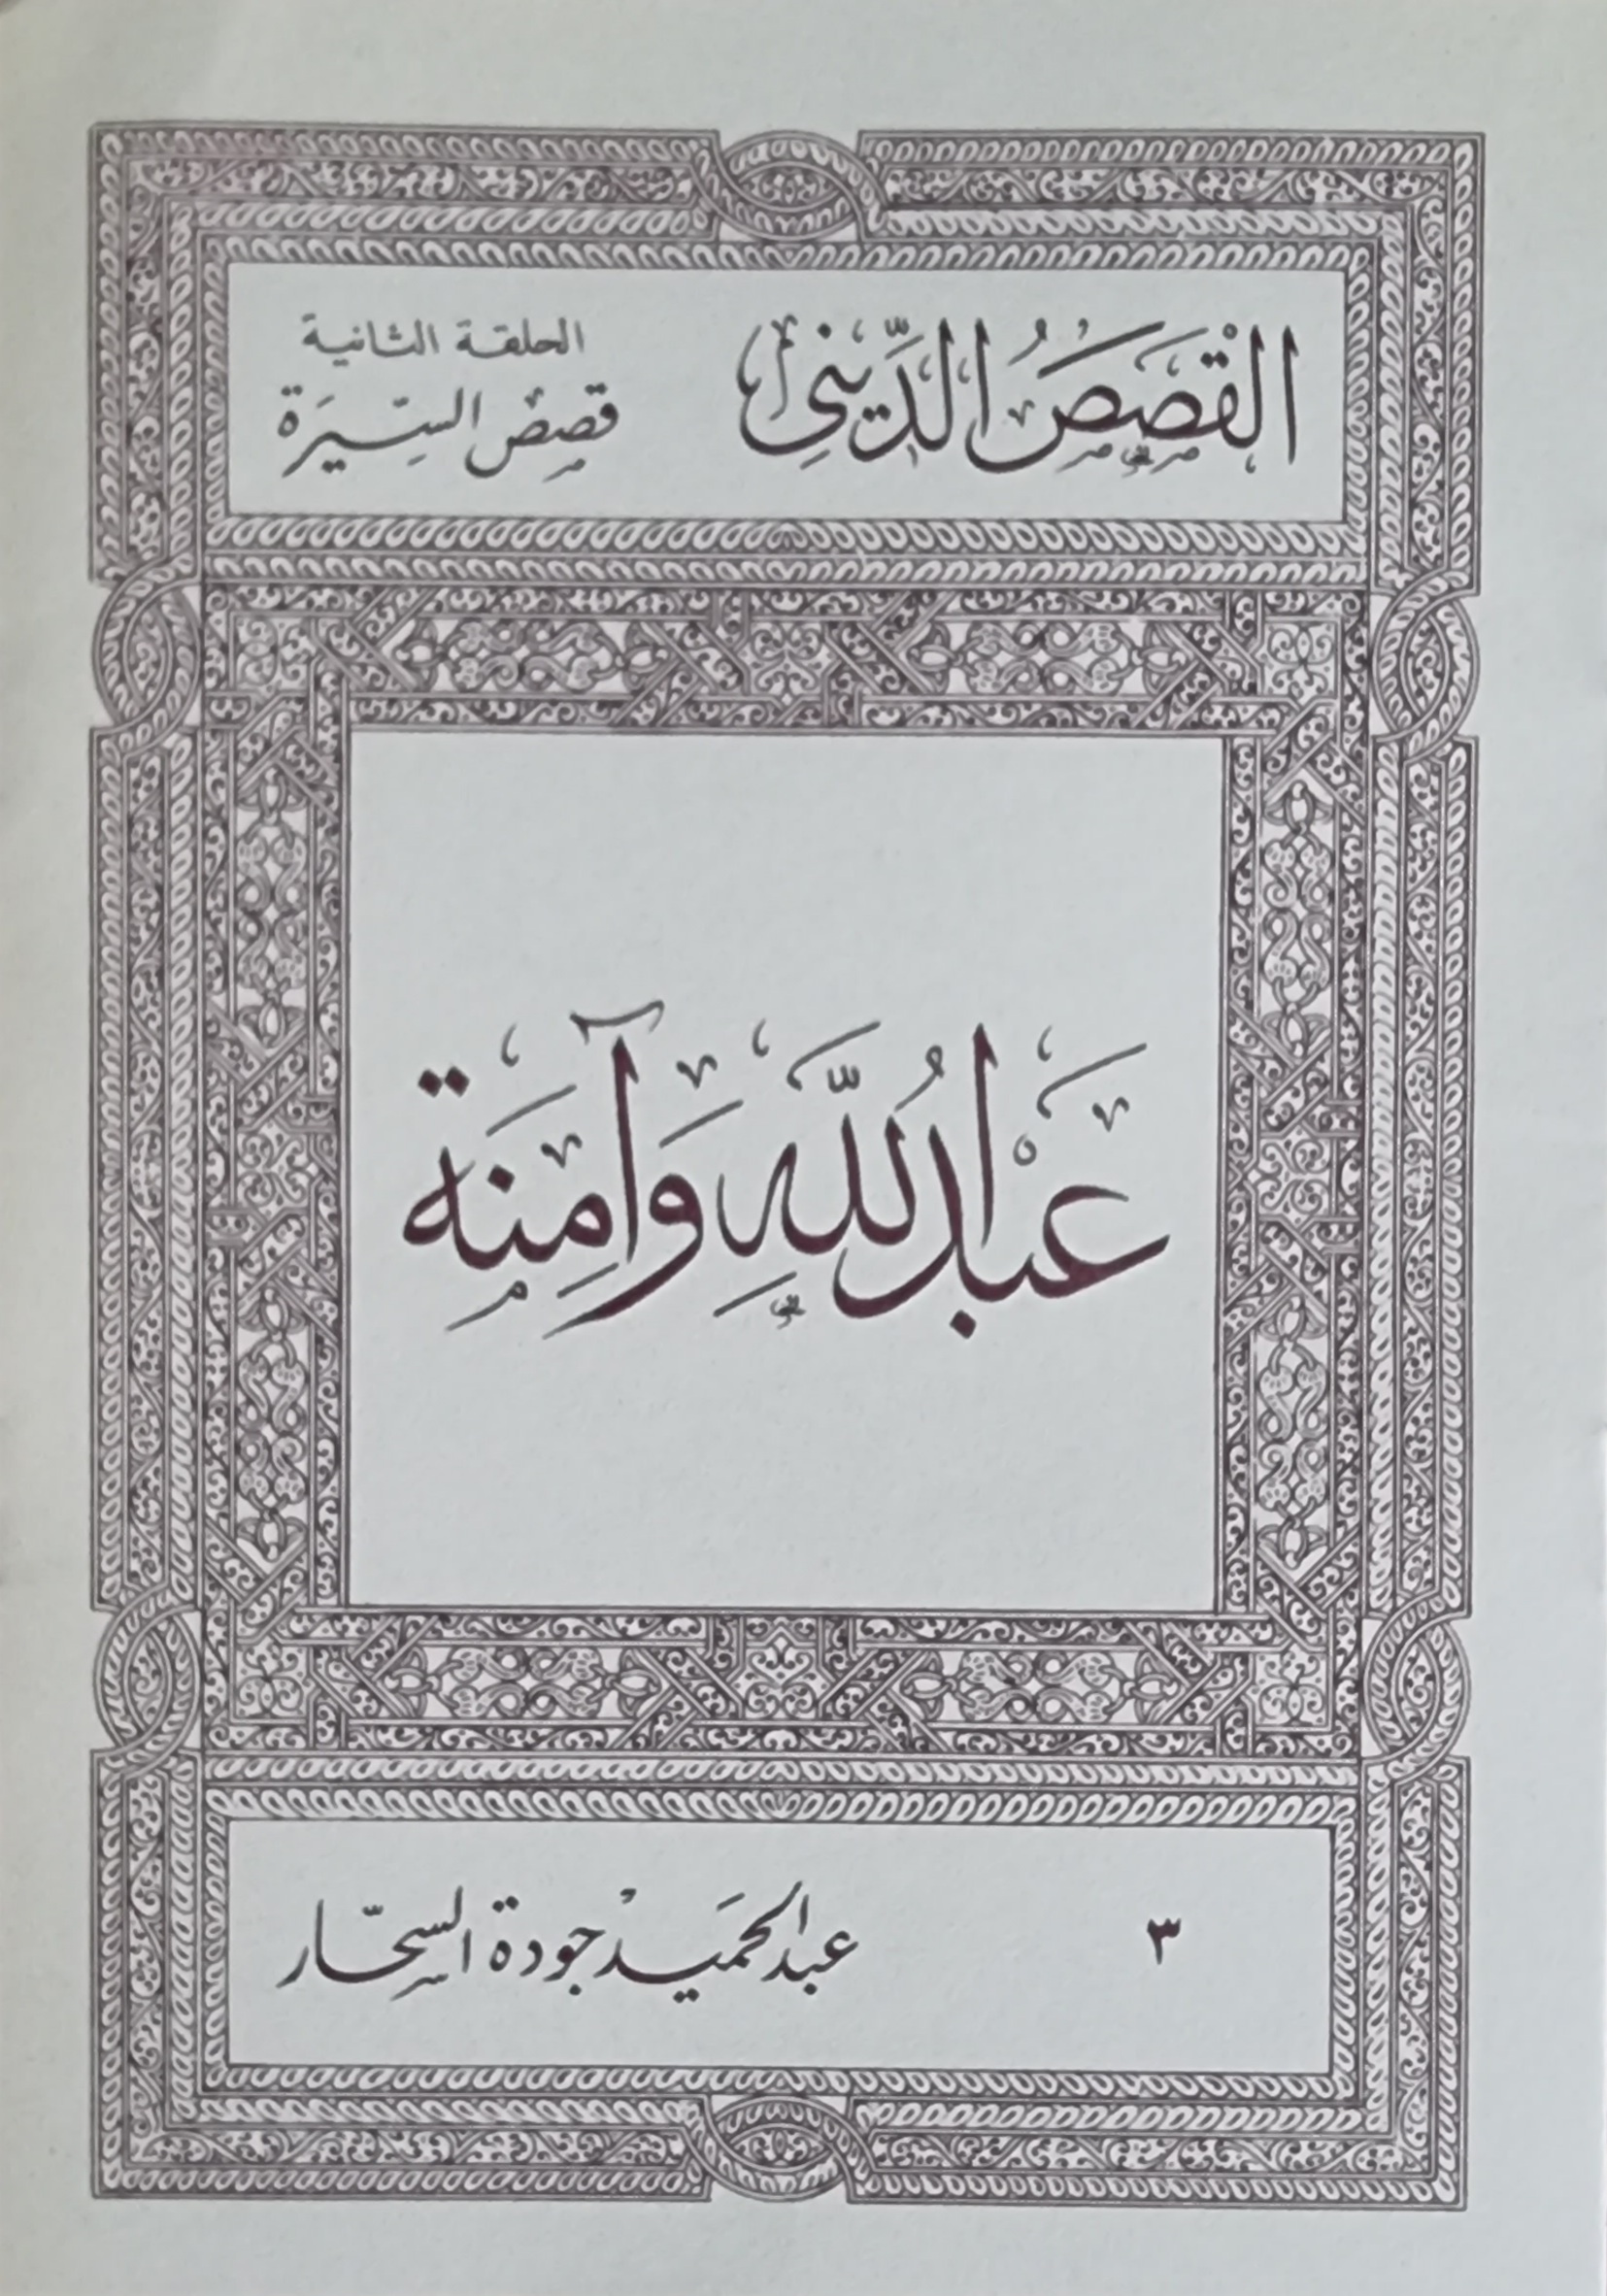 القصص الديني
الحلقة الثانية
قصص السيرة
عبد الله وآمنة
٣
عبد الحميد جودة السحار